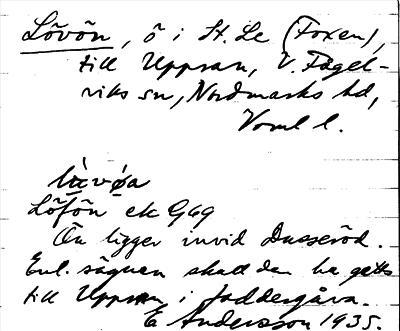 Lövön, ö i St. Le (Foxen),
till Uppsan, V. Fågel-
viks sn, Nordmarks hd,
Vrml l.
lùvøa
Löfön ek G69
Ön ligger invid Dusseröd.
Enl. sägnen skall den ha getts
till Uppsan i faddergåva.
E Andersson 1935.